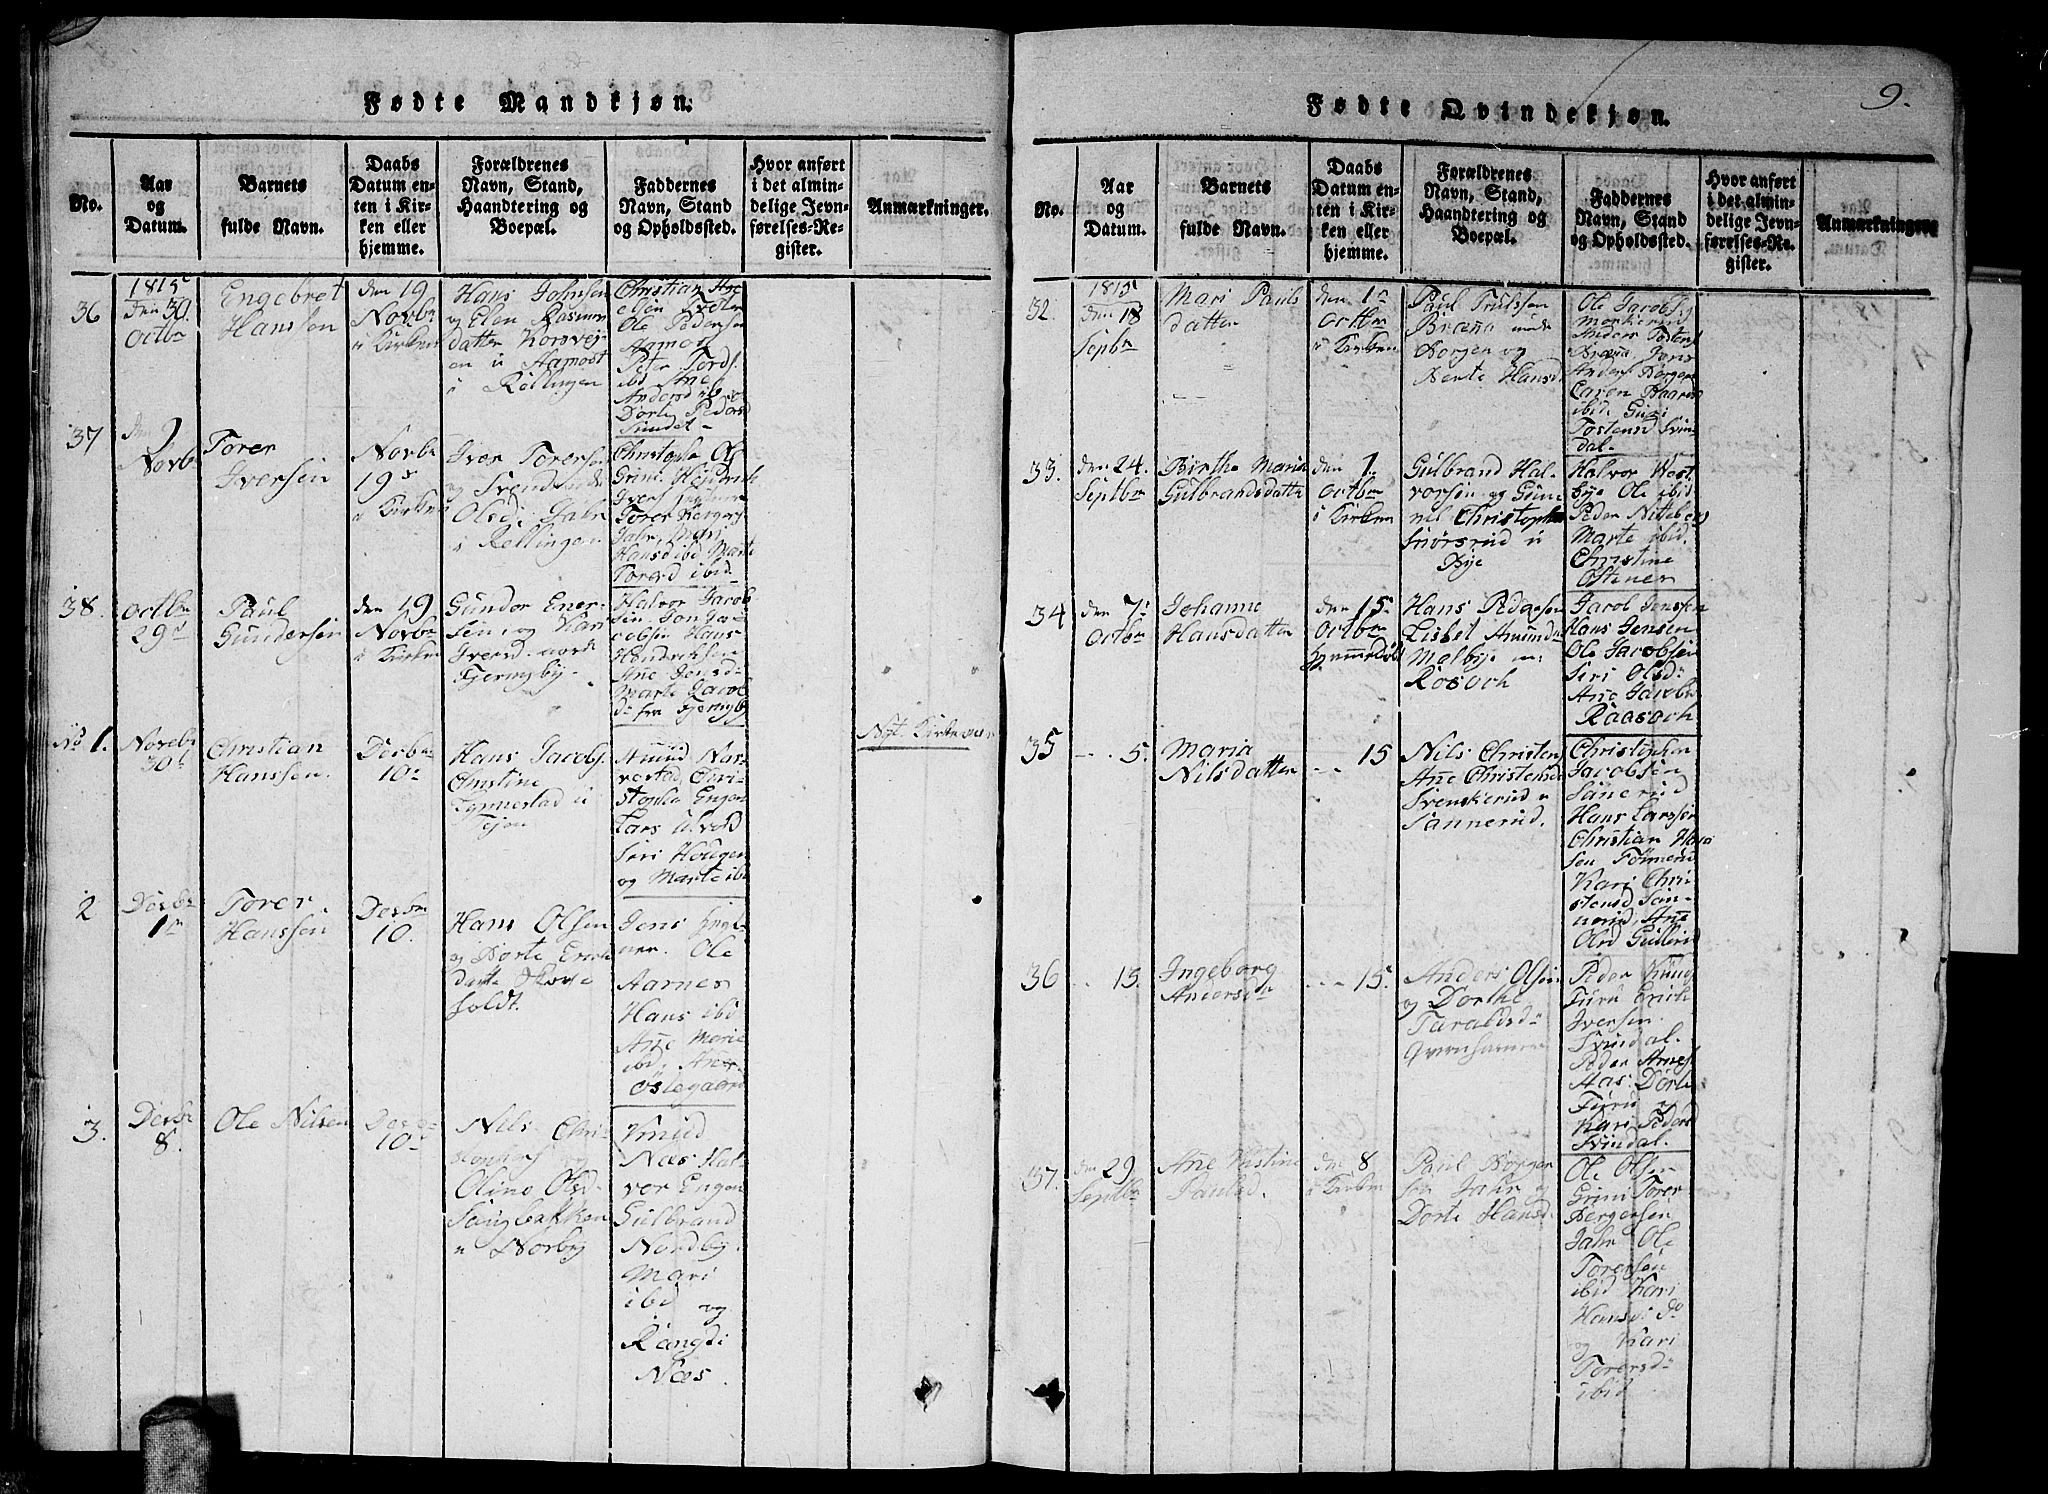 Fødte Mandkjøn.
No.
Aar
og
Datum.
Barnets
fulde Navn.
Daabs
Datum en-
ten i Kir-
ken eller
hjemme.
Forældrenes
Navn, Stand,
Haandtering og
Boepæl.
Faddernes
Navn, Stand
og Opholdssted.
Hvor anført
i det almin-
delige Jevn-
førelses-Re-
gister.
Anmærkninger.
36
1815
den 30
Octbr
Engebret
Hanssen
den 19
Novbr
i Kirken
Hans Johnsen
og Elen Rasmus
datter Korsvej-
en
i Rellingen
Christian
Ole Pedersen
Peter Tords.
ibd Ane
Andersd ib. og
Dorte Pedersd
Sundet
37
den 9
Novbr
Torer
Iversen
Novbr
19
i Kirken
Iver Torersen
og
Olsd. Jahr
i Rellingen
Christopher Ols
Grini Hendrik
Ivers
Torer Bergers
Jahr, Mari
Hansd ibd Marte
Torersd ibid
38.
Octbr
29
Paul
Gundersen
den 19
Novbr
i Kirken
Gunder Ener-
sen, og Kari
Iversd. nord
Fjerngby.
Halvor Jacob
sen Jon Ja-
cobsen Hans
Hendriksen
Ane Jensd
Marte Jacob
d fra Fjerngby
No 1.
Novbr
30
Christian
Hanssen.
Decbr
10
Hans Jacobs.
Christine
Tejen
Amund Nar-
vestad, Chri-
stopher Engen
Lars Ulvold
Siri Hougen
og Marte ibd
Nyt Kirkeaar
2
Decbr
1
Torer
Hanssen
Decbr
10.
Hans Olsen
og Dorte Erics
datter
foldt.
Jens
Ole
Aarnes
Hans ibd
Ane Marie
ibd, Ane
Østegaard
3.
Decbr
8.
Ole Nilsen
Decbr
10
Nils Chri-
og
Oline Olsd
Haugbakken
u Norby
Knud
Næs Hal-
vor Engen
Gulbrand
Nordby.
Mari
ibd og
Rangdi
Næs.
Fødte Qvindekjøn.
9.
No.
Aar
og
Datum.
Barnets
fulde Navn.
Daabs
Datum en-
ten i Kir-
ken eller
hjemme.
Forældrenes
Navn, Stand,
Haandtering og
Boepæl.
Faddernes
Navn, Stand
og Opholdssted.
Hvor anført
i det almin-
delige Jevn-
førelses-Re-
gister.
Anmærkninger
32.
1815
den 18
Sepbr
Mari Pauls
datter
den 1
Octbr
i Kirken
Paul Trulssen
Bræna unde
Borgen og
Berte Hansd
Ole Jacobs
Anders Tostens
Bræna Jens
Anders Borgen
Caren Haares
ibid. Guri
Tostensd Svin
dal.
33.
den 24.
Septbr
Birthe Maria
Gulbrandsdatter
den 1.
Octbr
i Kirken
Gulbrand Hal-
vorsen og Gun-
nil Christophers
Snörsrud u
Bye
Halvor West
bye Ole ibid
Peder Nitteberg
Marte ibid.
Christine
Ostener
34
den 7
Octbr
Johanne
Hansdatter
den 15
Octbr
Hjemmedøbt
Hans Pedersen
Lisbet Amunds
Malbye
Rosoch
Jacob Jenssen
Hans Jensen
Ole Jacobsen
Siri Olsd
Ane Jacobs
Raasoch
35
-- 5.
Maria
Nilsdatter
-- 15
Nils Christens
Ane Christensd
Svenskerud u
Sannerud.
Christopher
Jacobsen
Sanerud
Hans Larssen
Christian Hans
sen Tömerud
Kari Chri
stensd San-
nerud, Ane
Olsd Gullerud
36
-- 15.
Ingeborg
Andersd
--- 15.
Anders Olsen
og Dorthe
Taraldsd
Peder Knud
Furu Erich
Iversen
Svindal.
Peder Arnes
Aas. Dorte
Furu og
Kari Peders
Svindal.
37.
den 29
Septbr
Ane Kistine
Paulsd.
den 8
i Kirken
Paul Borger
sen Jahr og
Dorte Hansd
Ole Olsen
Grini Torer
Bergersen
Jahr Ole
Torersen
ibid Kari
Hansd do
og Kari
Torersd
ibid